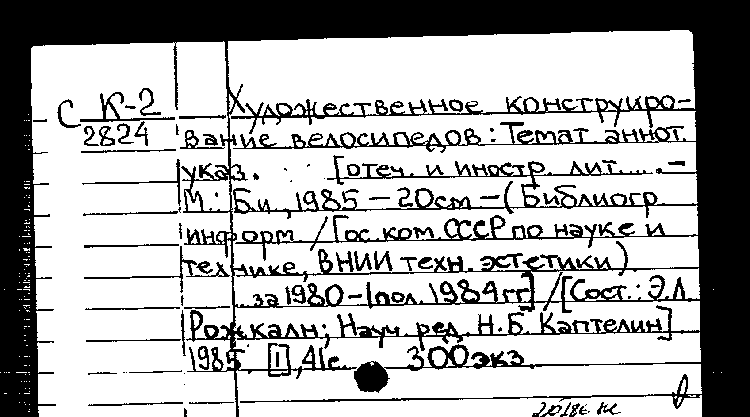 С К-2 Художественное конструиро-
2824 вание велосипедов: Темат. аннот.
указ. [отеч. и иностр. лит. .... –
М.: Б.и., 1985 – 20см – (Библиогр.
информ. /Гос. ком. СССР по науке и
технике, ВНИИ техн. эстетики)
... за 1980–I пол. 1984 гг] /[Сост.: Э.Л.
Рожкалн; Науч. ред. Н.Б. Каптелин]
1985. [I], 41с. 300экз.